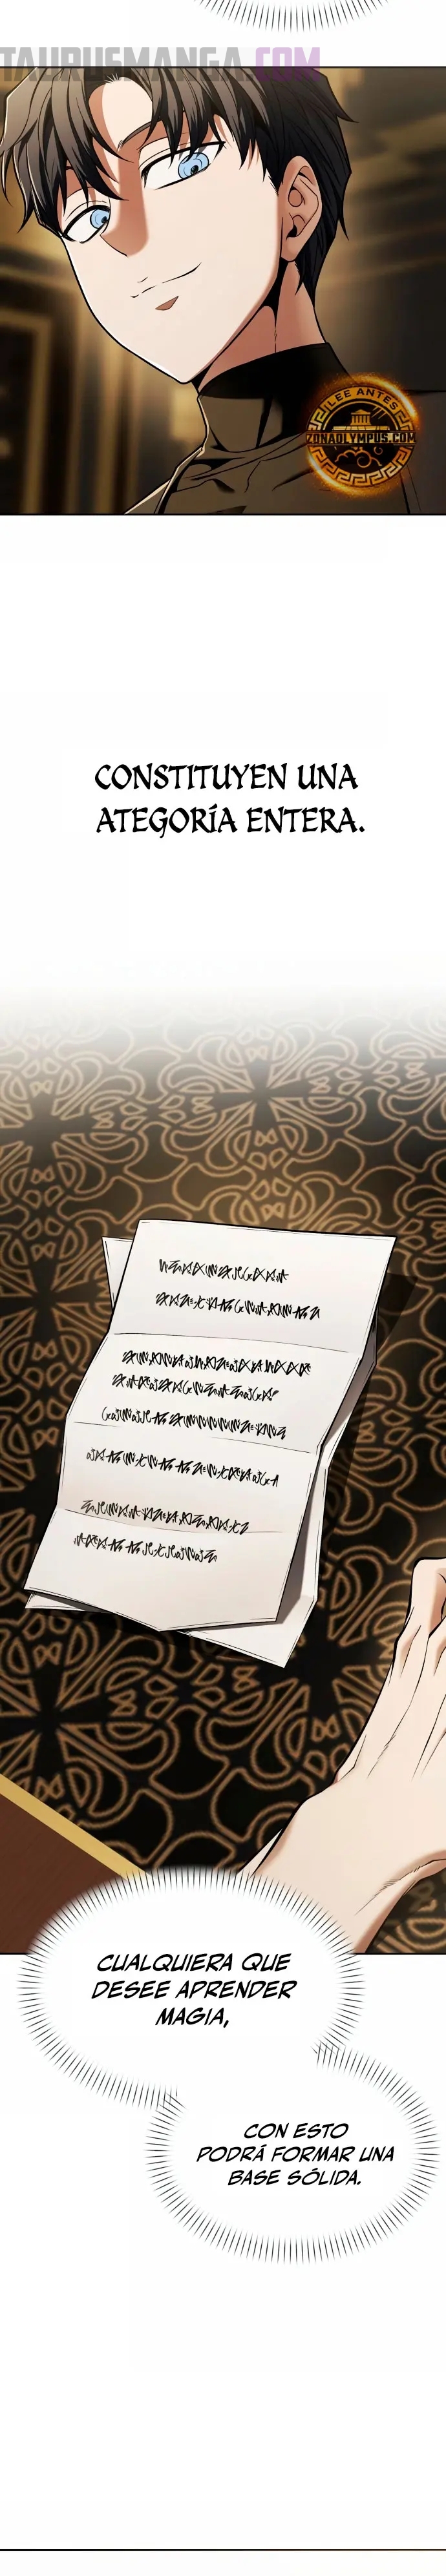 TAURUSMANGA.COM
LEE ANTES
ZONAOLYMPUS.COM
CONSTITUYEN UNA
ATEGORÍA ENTERA.
CUALQUIERA QUE
DESEE APRENDER
MAGIA,
CON ESTO
PODRÁ FORMAR UNA
BASE SÓLIDA.